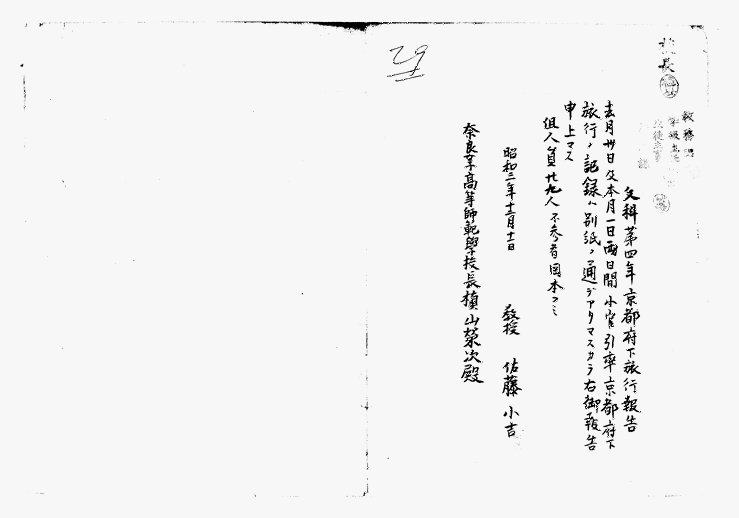 校長
教務課
文科第四年京都府下旅行報告
去月卅日及本月一日両日間小官引率京都府下
旅行ノ記録ハ別紙ノ通デアリマスカラ右御報告
申上マス
組人員廿九人不参者岡本フミ
昭和二年十二月十二日
教授 佐藤小吉
奈良女高等師範學校長槙山榮次殿
29